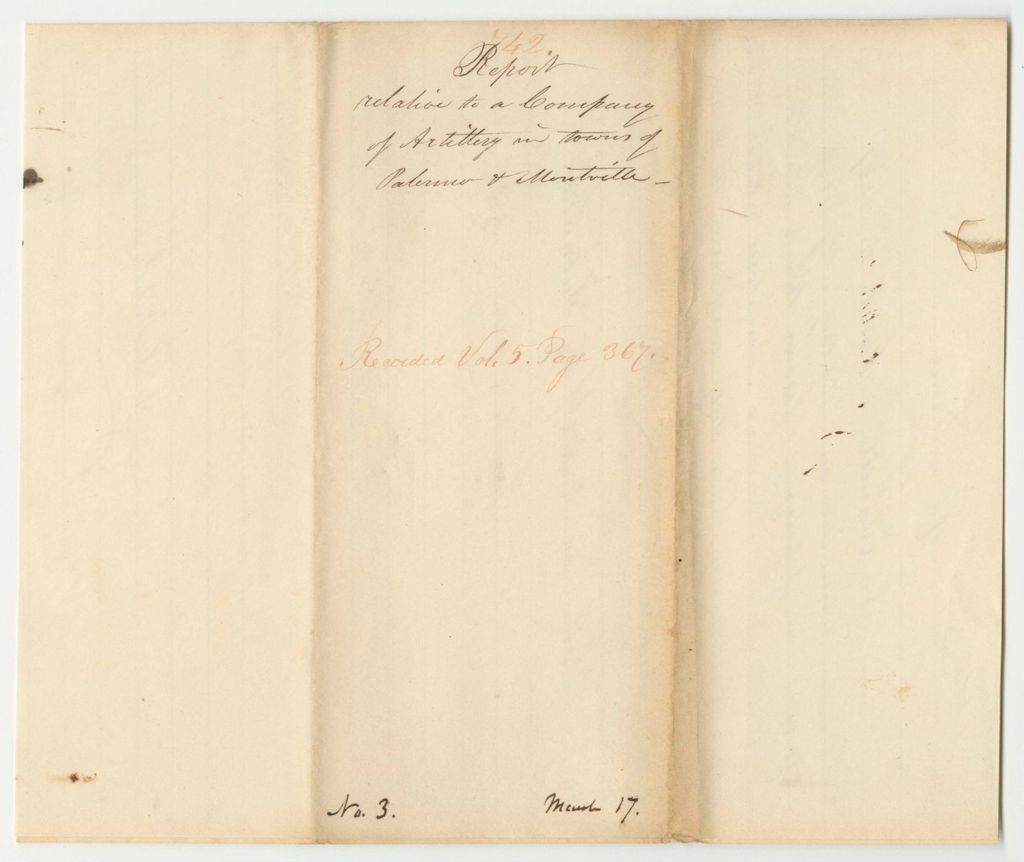 742.
Report
relative to a Company
of Artillery in towns of
Palermo & Montville –
Recorded Vol. 5. Page 367.
No. 3. March 17.